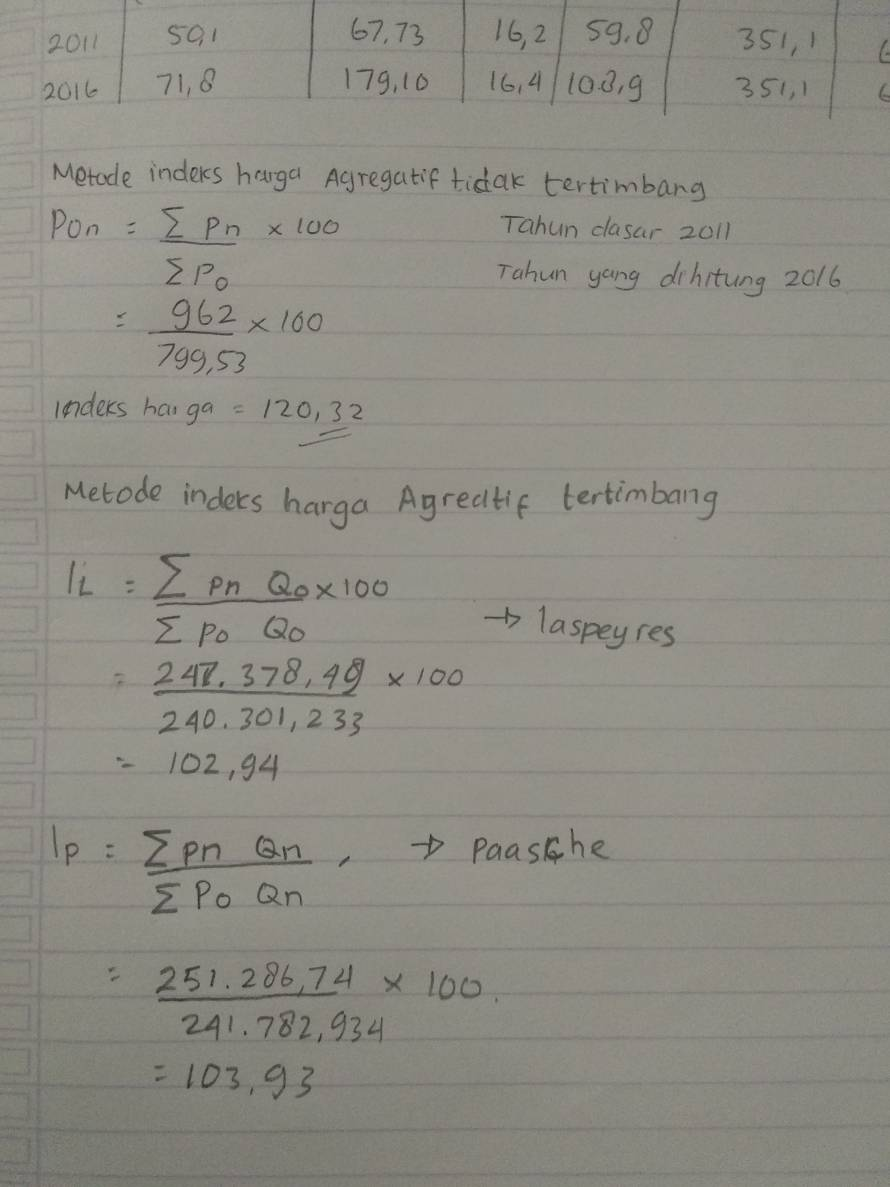 2011 50,1 67,73 16,2 59,8 351,1
2016 71,8 179,10 16,4 108,9 351,1
Metode indeks harga Agregatif tidak tertimbang
Pon = Σ Pn x 100 Tahun dasar 2011
Σ Po Tahun yang dihitung 2016
= 962 x 100
799,53
Indeks harga = 120,32
Metode indeks harga Agrecitif tertimbang
IL = Σ pn Qo x 100
Σ po Qo → laspeyres
= 247.378,49 x 100
240.301,233
= 102,94
Ip = Σ pn Qn , → paasche
Σ Po Qn
= 251.286,74 x 100.
241.782,934
= 103,93